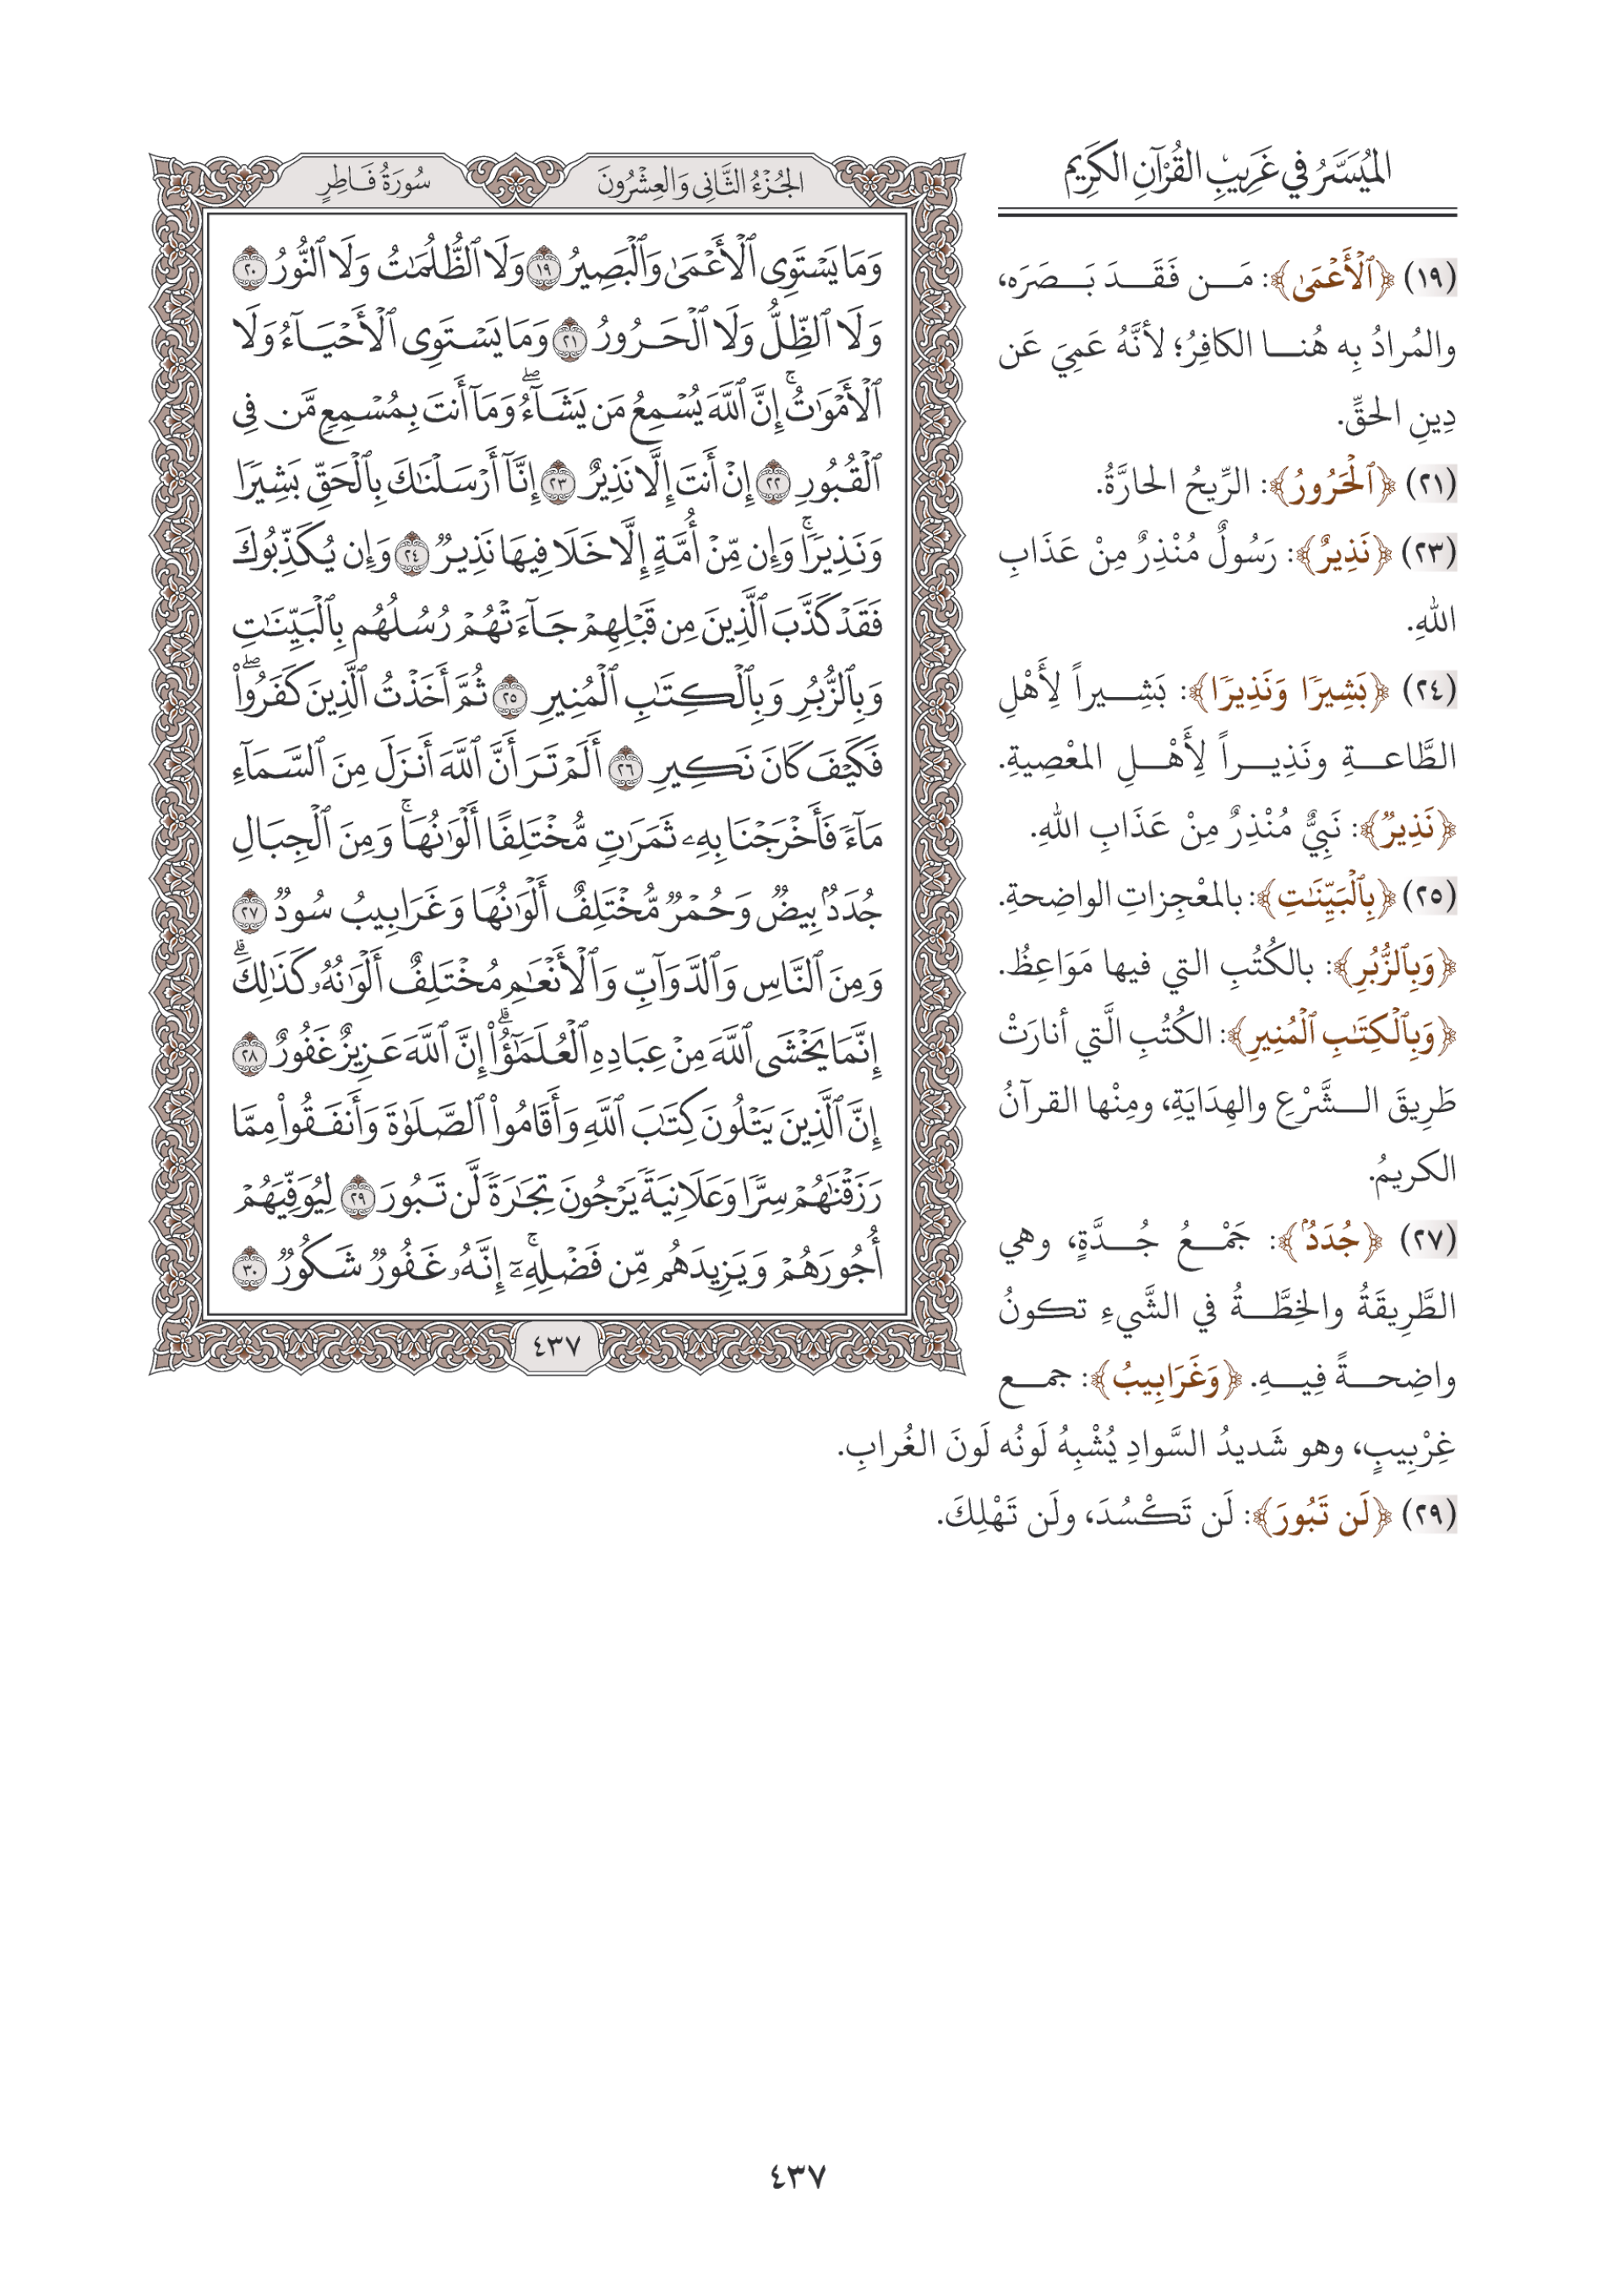 الميُسَّرُ في غَرِيبِ القُرْآنِ الكَرِيمِ
(١٩) ﴿ٱلْأَعْمَىٰ﴾: مَــن فَقَــدَ بَــصَرَه،
والمُرادُ بِه هُنــا الكافِرُ؛ لأنَّهُ عَمِيَ عَن
دِينِ الحقِّ.
(٢١) ﴿ٱلْحَرُورُ﴾: الرِّيحُ الحارَّةُ.
(٢٣) ﴿نَذِيرٌ﴾: رَسُولٌ مُنْذِرٌ مِنْ عَذَابِ
اللهِ.
(٢٤) ﴿بَشِيرًا وَنَذِيرًا﴾: بَشِــيراً لِأَهْلِ
الطَّاعــةِ ونَذِيــراً لِأَهْــلِ المعْصِيةِ.
﴿نَذِيرٌ﴾: نَبِيٌّ مُنْذِرٌ مِنْ عَذَابِ اللهِ.
(٢٥) ﴿بِٱلْبَيِّنَٰتِ﴾: بالمعْجِزاتِ الواضِحةِ.
﴿وَبِٱلزُّبُرِ﴾: بالكُتُبِ التي فيها مَوَاعِظُ.
﴿وَبِٱلْكِتَٰبِ ٱلْمُنِيرِ﴾: الكُتُبِ الَّتي أنارَتْ
طَرِيقَ الــشَّرْعِ والهِدَايَةِ، ومِنْها القرآنُ
الكريمُ.
(٢٧) ﴿جُدَدٌ﴾: جَمْــعُ جُــدَّةٍ، وهي
الطَّرِيقَةُ والخِطَّــةُ في الشَّيءِ تكونُ
واضِحــةً فِيــهِ. ﴿وَغَرَابِيبُ﴾: جمــع
غِرْبِيبٍ، وهو شَديدُ السَّوادِ يُشْبِهُ لَونُه لَونَ الغُرابِ.
(٢٩) ﴿لَن تَبُورَ﴾: لَن تَكْسُدَ، ولَن تَهْلِكَ.
الجُزْءُ الثَّانِي وَالعِشْرُونَ
سُورَةُ فَاطِرٍ
وَمَا يَسْتَوِى ٱلْأَعْمَىٰ وَٱلْبَصِيرُ ١٩ وَلَا ٱلظُّلُمَٰتُ وَلَا ٱلنُّورُ ٢٠
وَلَا ٱلظِّلُّ وَلَا ٱلْحَرُورُ ٢١ وَمَا يَسْتَوِى ٱلْأَحْيَآءُ وَلَا
ٱلْأَمْوَٰتُۚ إِنَّ ٱللَّهَ يُسْمِعُ مَن يَشَآءُۖ وَمَآ أَنتَ بِمُسْمِعٍ مَّن فِى
ٱلْقُبُورِ ٢٢ إِنْ أَنتَ إِلَّا نَذِيرٌ ٢٣ إِنَّآ أَرْسَلْنَٰكَ بِٱلْحَقِّ بَشِيرًا
وَنَذِيرًاۚ وَإِن مِّنْ أُمَّةٍ إِلَّا خَلَا فِيهَا نَذِيرٌ ٢٤ وَإِن يُكَذِّبُوكَ
فَقَدْ كَذَّبَ ٱلَّذِينَ مِن قَبْلِهِمْ جَآءَتْهُمْ رُسُلُهُم بِٱلْبَيِّنَٰتِ
وَبِٱلزُّبُرِ وَبِٱلْكِتَٰبِ ٱلْمُنِيرِ ٢٥ ثُمَّ أَخَذْتُ ٱلَّذِينَ كَفَرُوا۟ۖ
فَكَيْفَ كَانَ نَكِيرِ ٢٦ أَلَمْ تَرَ أَنَّ ٱللَّهَ أَنزَلَ مِنَ ٱلسَّمَآءِ
مَآءً فَأَخْرَجْنَا بِهِۦ ثَمَرَٰتٍ مُّخْتَلِفًا أَلْوَٰنُهَاۚ وَمِنَ ٱلْجِبَالِ
جُدَدٌۢ بِيضٌ وَحُمْرٌ مُّخْتَلِفٌ أَلْوَٰنُهَا وَغَرَابِيبُ سُودٌ ٢٧
وَمِنَ ٱلنَّاسِ وَٱلدَّوَآبِّ وَٱلْأَنْعَٰمِ مُخْتَلِفٌ أَلْوَٰنُهُۥ كَذَٰلِكَۗ
إِنَّمَا يَخْشَى ٱللَّهَ مِنْ عِبَادِهِ ٱلْعُلَمَٰٓؤُا۟ۗ إِنَّ ٱللَّهَ عَزِيزٌ غَفُورٌ ٢٨
إِنَّ ٱلَّذِينَ يَتْلُونَ كِتَٰبَ ٱللَّهِ وَأَقَامُوا۟ ٱلصَّلَوٰةَ وَأَنفَقُوا۟ مِمَّا
رَزَقْنَٰهُمْ سِرًّا وَعَلَانِيَةً يَرْجُونَ تِجَٰرَةً لَّن تَبُورَ ٢٩ لِيُوَفِّيَهُمْ
أُجُورَهُمْ وَيَزِيدَهُم مِّن فَضْلِهِۦٓۚ إِنَّهُۥ غَفُورٌ شَكُورٌ ٣٠
٤٣٧
٤٣٧